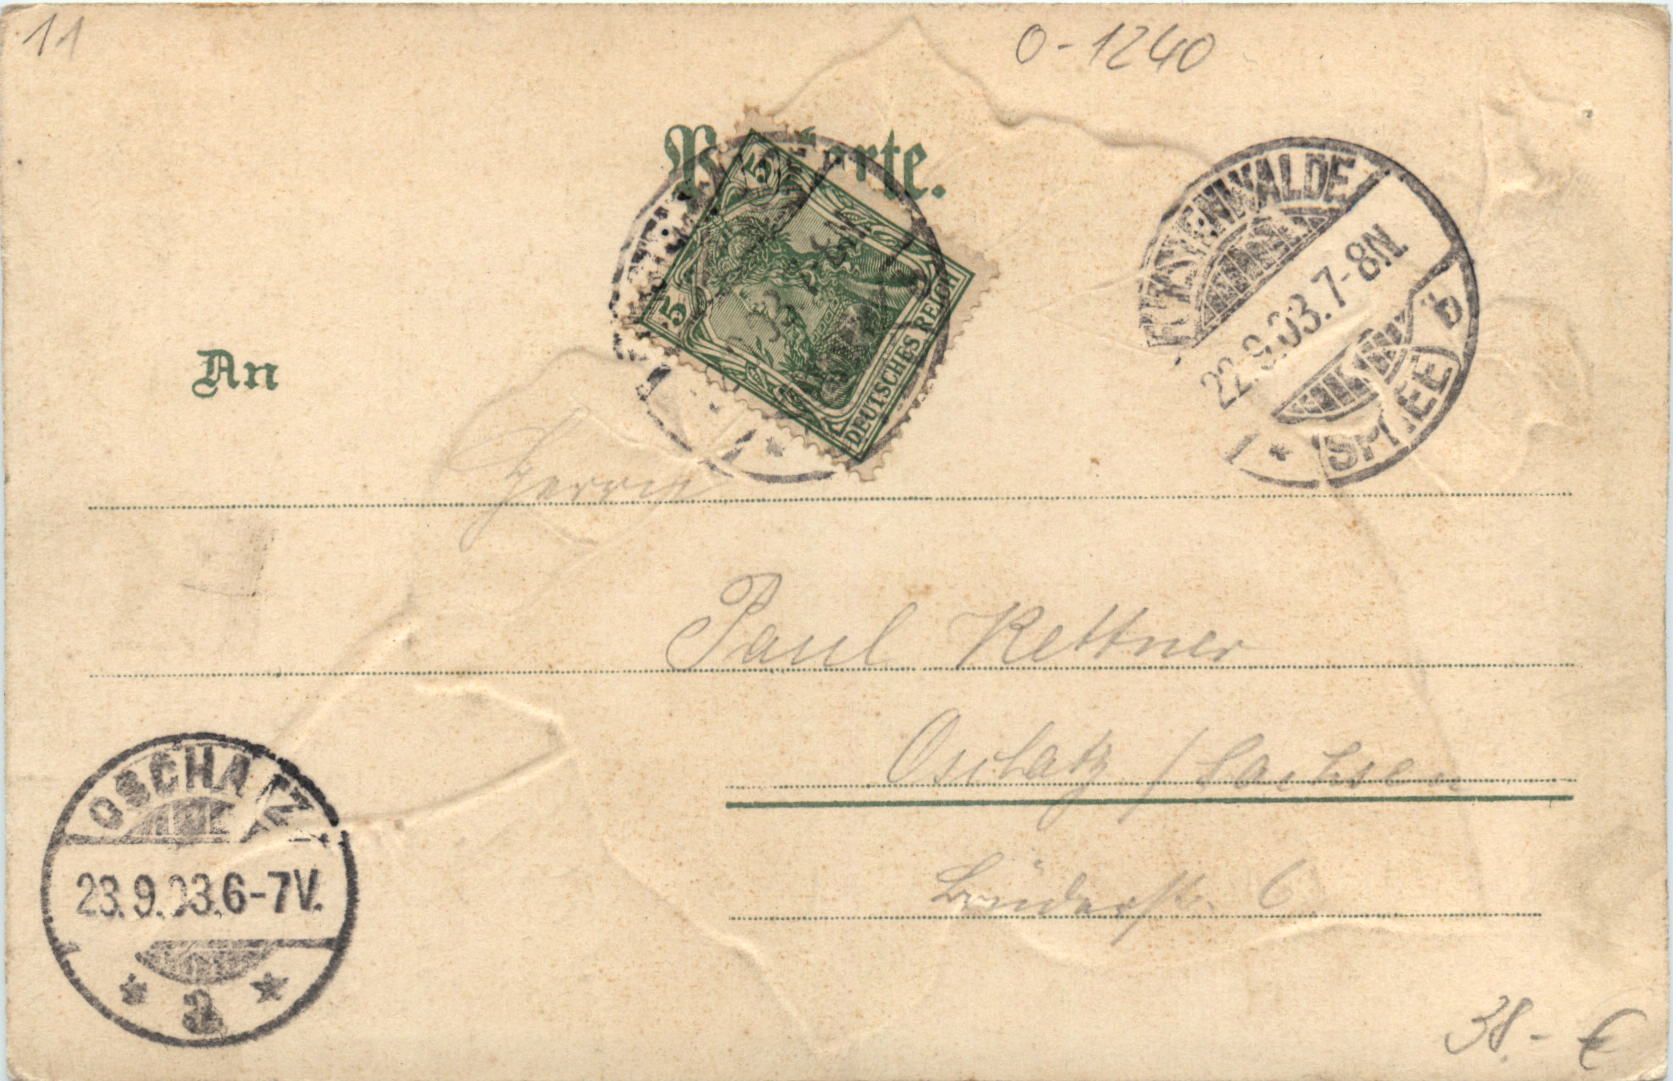 11
0-1240
Postkarte.
5
5
DEUTSCHES REICH
FÜRSTENWALDE
22.9.03.7-8N.
b
* (SPREE)
An
Herrn
Paul Kettner
Oschatz / Sachsen
Brüderstr. 6
OSCHATZ
23.9.03.6-7V.
* a *
38.- €